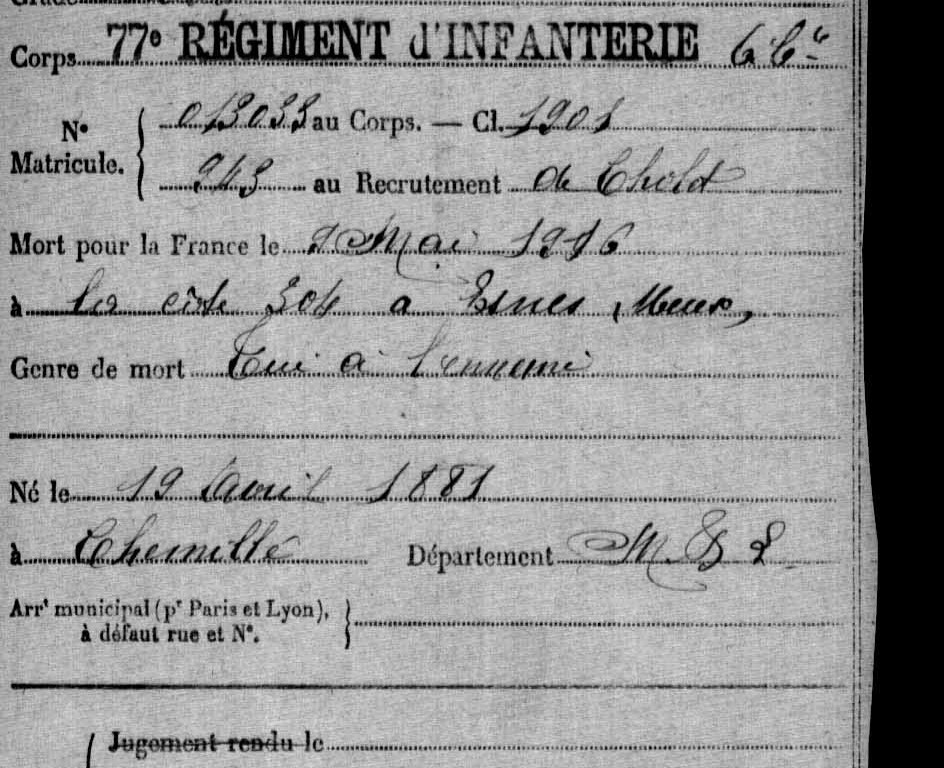 Corps 77e RÉGIMENT d'INFANTERIE 6 Cie
No Matricule. { 013033 au Corps. — Cl. 1901
943 au Recrutement de Cholet
Mort pour la France le 9 Mai 1916
à la cote 304 à Esnes (Meuse)
Genre de mort Tué à l'ennemi
Né le 19 Avril 1881
à Chemillé Département M & L
Arrt municipal (pr Paris et Lyon),
à défaut rue et No.
Jugement rendu le